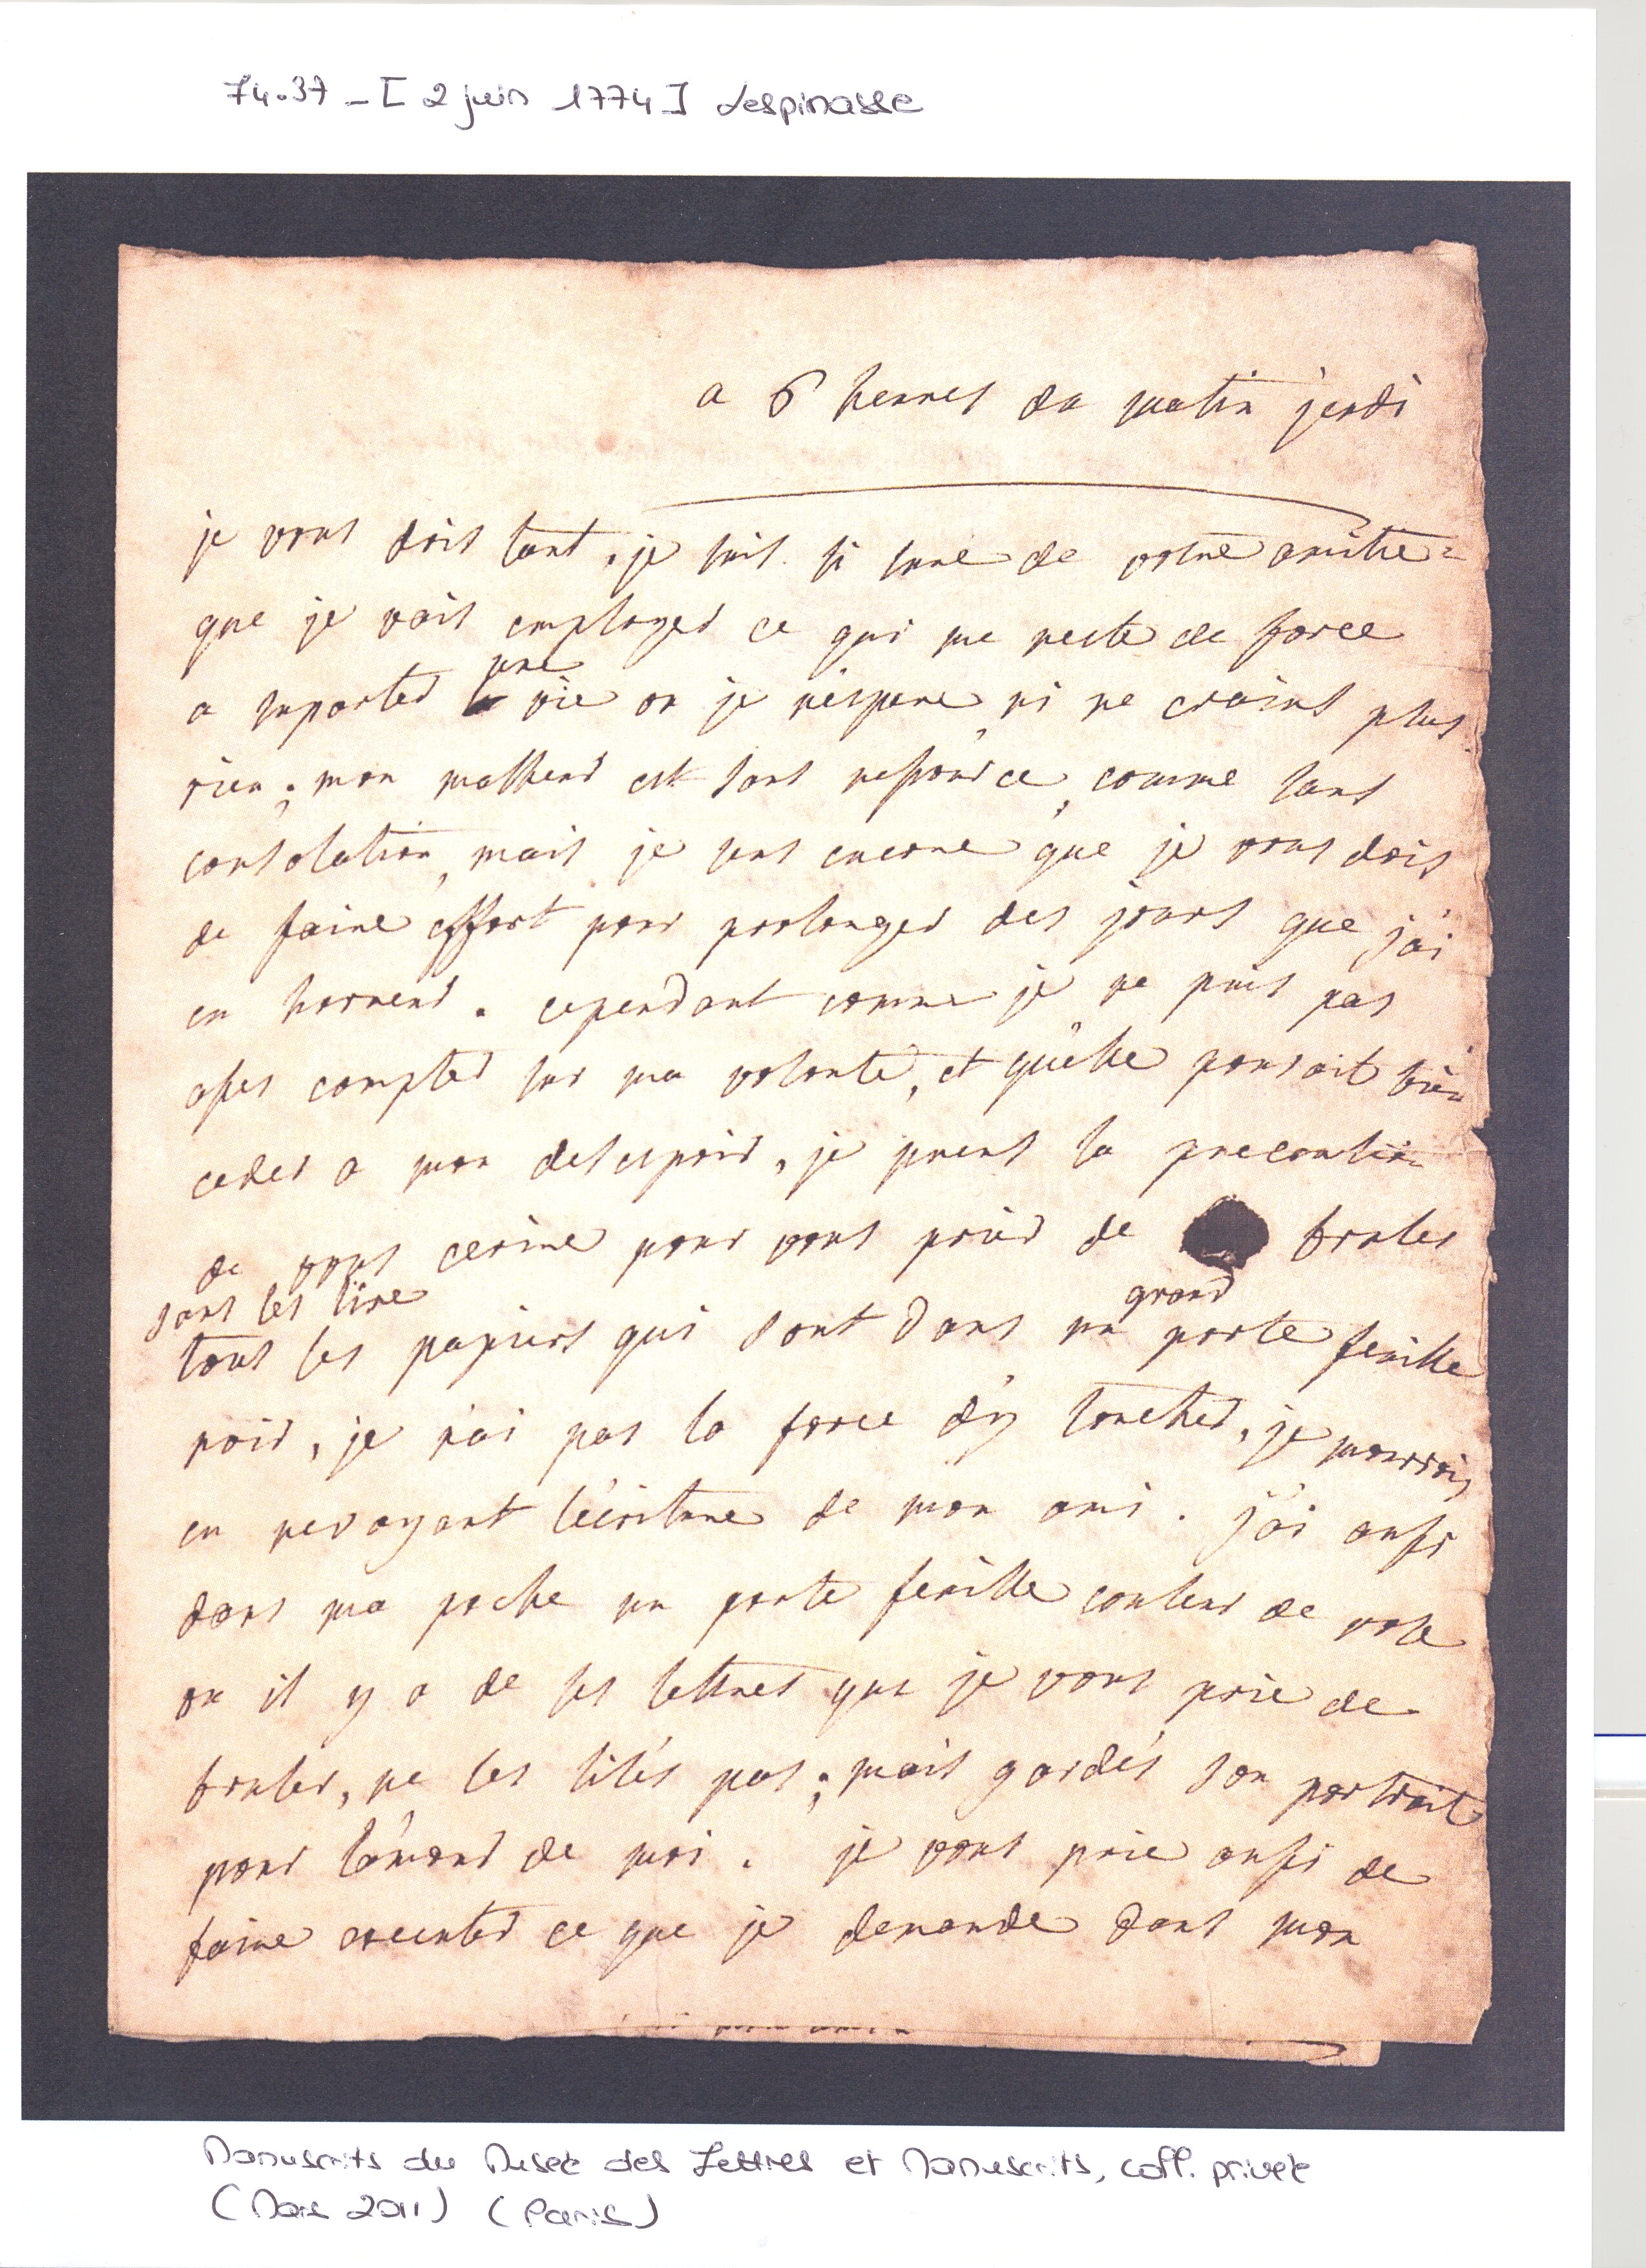 74.37 - [2 juin 1774] Lespinasse
a 6 heures du matin jeudi
je vous dois tant, je suis si sure de votre amitie
que je vais employer ce qui me reste de force
a suporter une vie ou je n'espere, ni ne crains plus
rien ; mon malheur est sans ressource, comme sans
consolation, mais je sens encore que je vous dois
de faire effort pour prolonger des jours que j'ai
en horreur. cependant comme je ne puis pas
asses compter sur ma volonté, et qu'elle pouroit bien
ceder a mon desespoir, je prens la precaution
de vous ecrire pour vous prier de bruler
sans les lire
tous les papiers qui sont dans un grand porte feuille
noir, je n'ai pas la force d'y toucher, je mourrois
en revoyant l'écriture de mon ami. j'ai aussi
dans ma poche un porte feuille couleur de rose
ou il y a de ses lettres que je vous prie de
bruler, ne les lisés pas ; mais gardés son portrait
pour l'amour de moi. je vous prie aussi de
faire executer ce que je demande dans mon
Manuscrits du Musée des Lettres et Manuscrits, coll. privée
(Mars 2011) (Paris)